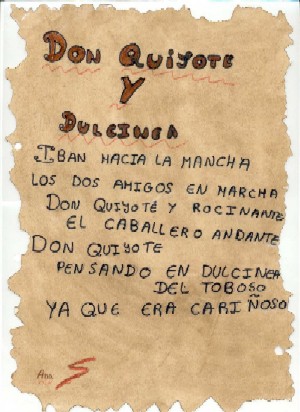 DON QUIJOTE
Y
DULCINEA
IBAN HACIA LA MANCHA
LOS DOS AMIGOS EN MARCHA
DON QUIJOTE Y ROCINANTE
EL CABALLERO ANDANTE
DON QUIJOTE
PENSANDO EN DULCINEA
DEL TOBOSO
YA QUE ERA CARIÑOSO
Ana